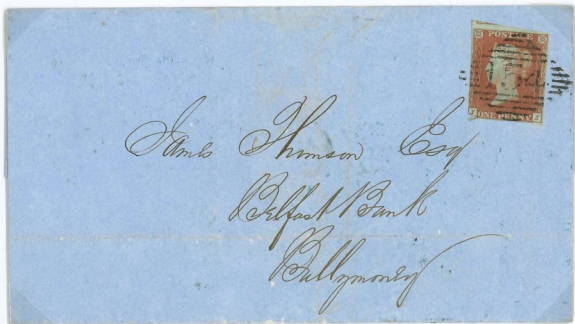 POSTAGE
ONE PENNY
James Thomson Esq
Belfast Bank
Ballymoney